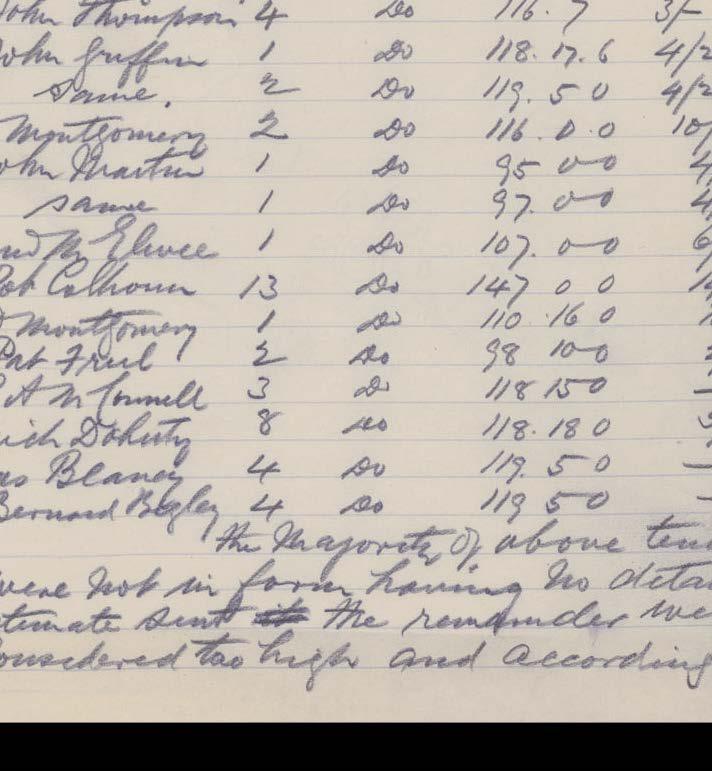 John Thompson 4 Do 116. 7 3/-
John Griffin 1 Do 118. 17. 6 4/2
same. 2 Do 119. 5 0 4/2
Montgomery 2 Do 116. 0. 0 10/
John Martin 1 Do 95 0 0 4
same 1 Do 97. 0 0 4
McElwee 1 Do 107. 0 0 6/
Rob Calhoun 13 Do 147 0 0
Montgomery 1 Do 110 16 0
Pat Friel 2 Do 98 10 0
A McConnell 3 Do 118 15 0 -
Doherty 8 do 118. 18 0
Blaney 4 Do 119. 5 0 -
Bernard Begley 4 Do 119 5 0 -
the Majority of above ten
were not in form having no deta
timate sent the remainder we
onsidered too high and according